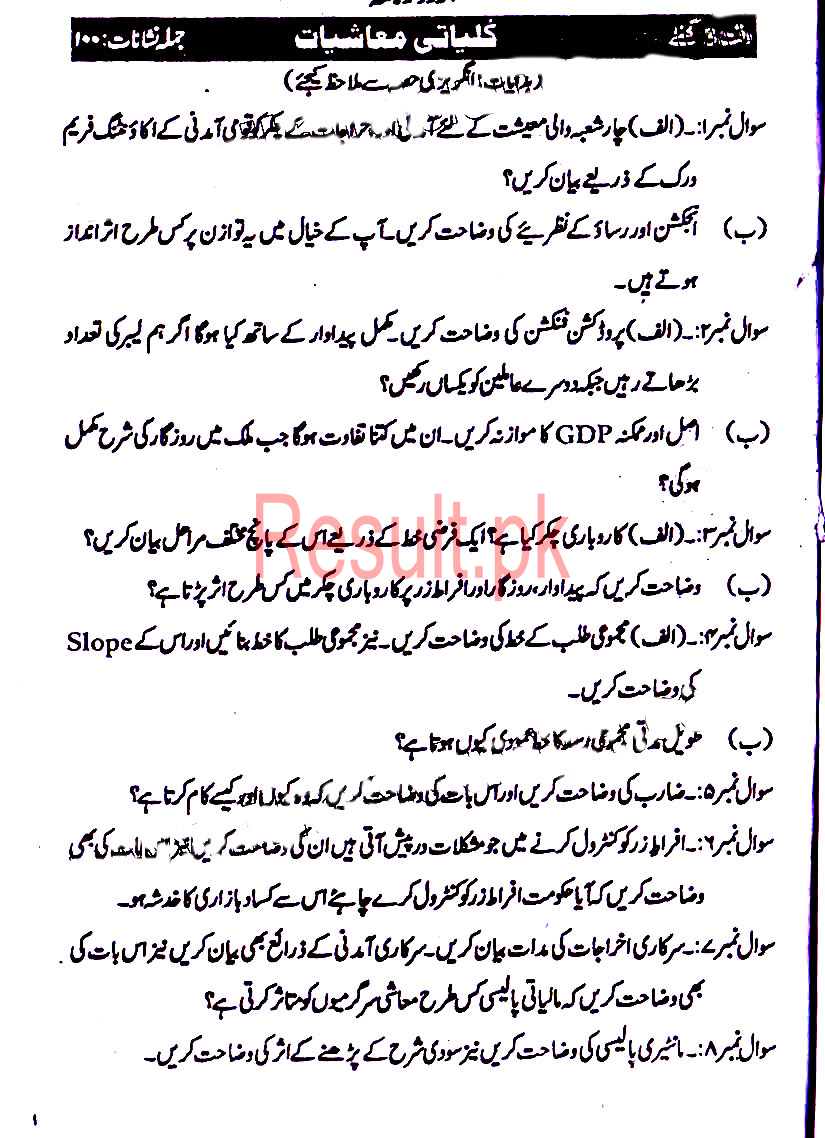 کلیاتی معاشیات
جملہ نشانات: ۱۰۰
(ہدایات: انگریزی حصہ سے ملاحظہ کیجئے)
سوال نمبر۱:۔ (الف) چار شعبہ والی معیشت کے لئے آمدنی اور اخراجات کے چکر کو قومی آمدنی کے اکاؤنٹنگ فریم
ورک کے ذریعے بیان کریں؟
(ب) انجکشن اور رساؤ کے نظریئے کی وضاحت کریں۔ آپ کے خیال میں یہ توازن پر کس طرح اثر انداز
ہوتے ہیں۔
سوال نمبر۲:۔ (الف) پروڈکشن فنکشن کی وضاحت کریں۔ مکمل پیداوار کے ساتھ کیا ہوگا اگر ہم لیبر کی تعداد
بڑھاتے رہیں جبکہ دوسرے عاملین کو یکساں رکھیں؟
(ب) اصل اور ممکنہ GDP کا موازنہ کریں۔ ان میں کتنا تفاوت ہوگا جب ملک میں روزگار کی شرح مکمل
ہوگی؟
سوال نمبر۳:۔ (الف) کاروباری چکر کیا ہے؟ ایک فرضی خط کے ذریعے اس کے پانچ مختلف مراحل بیان کریں؟
(ب) وضاحت کریں کہ پیداوار، روزگار اور افراط زر پر کاروباری چکر میں کس طرح اثر پڑتا ہے؟
سوال نمبر۴:۔ (الف) مجموعی طلب کے خط کی وضاحت کریں۔ نیز مجموعی طلب کا خط بنائیں اور اس کے Slope
کی وضاحت کریں۔
(ب) طویل مدتی مجموعی رسد کا خط عمودی کیوں ہوتا ہے؟
سوال نمبر۵:۔ ضارب کی وضاحت کریں اور اس بات کی وضاحت کریں کہ وہ کیوں اور کیسے کام کرتا ہے؟
سوال نمبر۶:۔ افراط زر کو کنٹرول کرنے میں جو مشکلات درپیش آتی ہیں ان کی وضاحت کریں نیز اس بات کی بھی
وضاحت کریں کہ آیا حکومت افراط زر کو کنٹرول کرے چاہئے اس سے کساد بازاری کا خدشہ ہو۔
سوال نمبر۷:۔ سرکاری اخراجات کی مدات بیان کریں۔ سرکاری آمدنی کے ذرائع بھی بیان کریں نیز اس بات کی
بھی وضاحت کریں کہ مالیاتی پالیسی کس طرح معاشی سرگرمیوں کو متاثر کرتی ہے؟
سوال نمبر۸:۔ مانیٹری پالیسی کی وضاحت کریں نیز سودی شرح کے بڑھنے کے اثر کی وضاحت کریں۔
Result.pk
۱